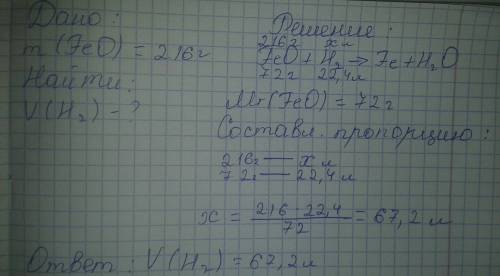 Дано:
m (FeO) = 216г
Найти:
V(H₂) - ?
Решение:
216г х л
FeO + H₂ → Fe + H₂O
72г 22,4л
Mr(FeO) = 72г
Составл. пропорцию:
216г — х л
72г — 22,4 л
x = 216 · 22,4 / 72 = 67,2 л
Ответ: V(H₂) = 67,2 л